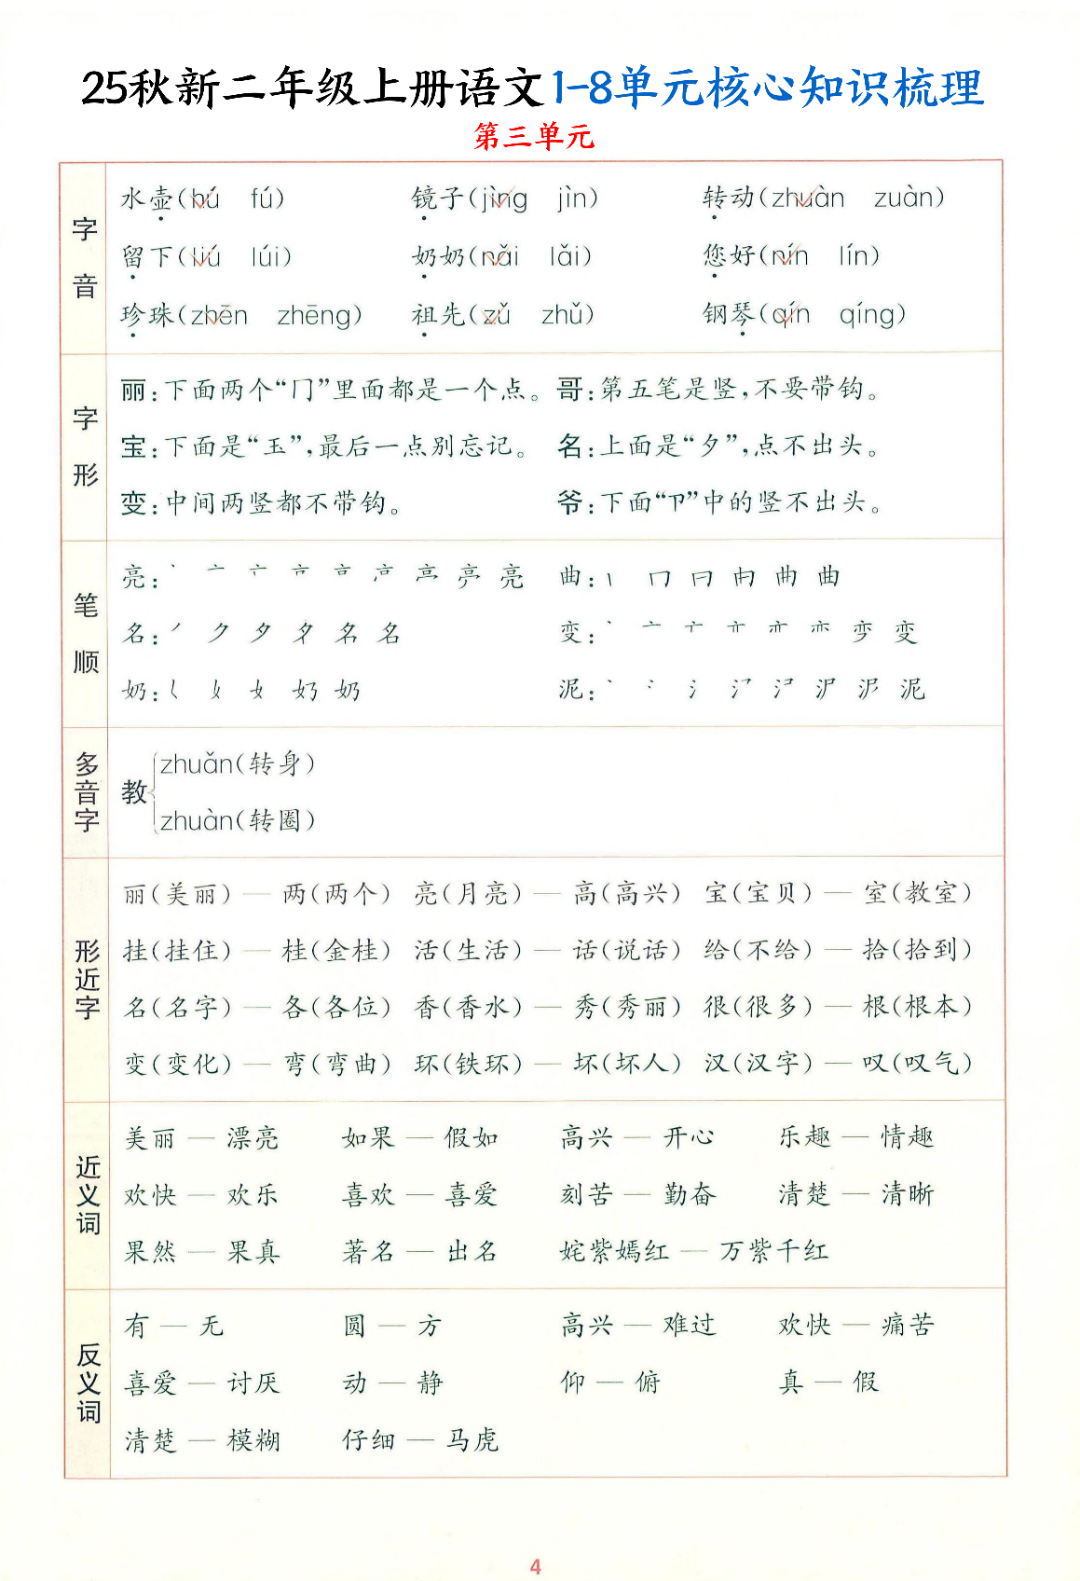 25秋新二年级上册语文1-8单元核心知识梳理
第三单元
字音
水壶(hú fú) 镜子(jìng jìn) 转动(zhuàn zuàn)
留下(liú lúi) 奶奶(nǎi lǎi) 您好(nín lín)
珍珠(zhēn zhēng) 祖先(zǔ zhǔ) 钢琴(qín qíng)
字形
丽:下面两个“冂”里面都是一个点。 哥:第五笔是竖,不要带钩。
宝:下面是“玉”,最后一点别忘记。 名:上面是“夕”,点不出头。
变:中间两竖都不带钩。 爷:下面“卩”中的竖不出头。
笔顺
亮: 丶 亠 亮 曲: 丨 冂 曰 曲
名: 丿 ク 夕 名 名 变: 丶 亠 变
奶: 奶 奶 泥: 丶 冫 氵 泥
多音字
教
zhuǎn(转身)
zhuàn(转圈)
形近字
丽(美丽) — 两(两个) 亮(月亮) — 高(高兴) 宝(宝贝) — 室(教室)
挂(挂住) — 桂(金桂) 活(生活) — 话(说话) 给(不给) — 拾(拾到)
名(名字) — 各(各位) 香(香水) — 秀(秀丽) 很(很多) — 根(根本)
变(变化) — 弯(弯曲) 环(铁环) — 坏(坏人) 汉(汉字) — 叹(叹气)
近义词
美丽 — 漂亮 如果 — 假如 高兴 — 开心 乐趣 — 情趣
欢快 — 欢乐 喜欢 — 喜爱 刻苦 — 勤奋 清楚 — 清晰
果然 — 果真 著名 — 出名 姹紫嫣红 — 万紫千红
反义词
有 — 无 圆 — 方 高兴 — 难过 欢快 — 痛苦
喜爱 — 讨厌 动 — 静 仰 — 俯 真 — 假
清楚 — 模糊 仔细 — 马虎
4